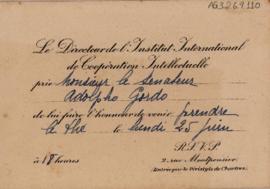 AG3.269.110
Le Directeur de l'Institut International
de Coopération Intellectuelle
prie Monsieur le Senateur
Adolpho Gordo
de lui faire l'honneur de venir prendre
le thé le lundi 25 juin
à 18 heures
R.S.V.P
2, rue Montpensier
(Entrée par le Péristyle de Chartres)